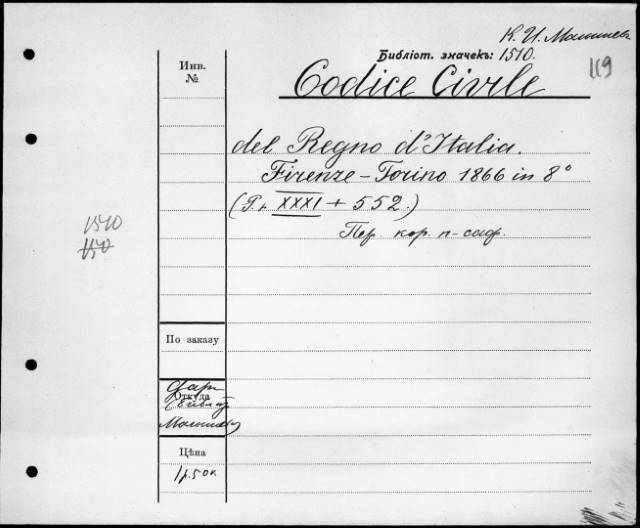 К. И. Малышева
Библіот. значекъ: 1510.
119
Инв.
№
Codice Civile
del Regno d'Italia.
Firenze - Torino 1866 in 8°
(P. XXXI + 552.)
Пер. кор. п-саф.
1510
По заказу
Откуда
Дар
Малышева
Цѣна
1 р. 50 к